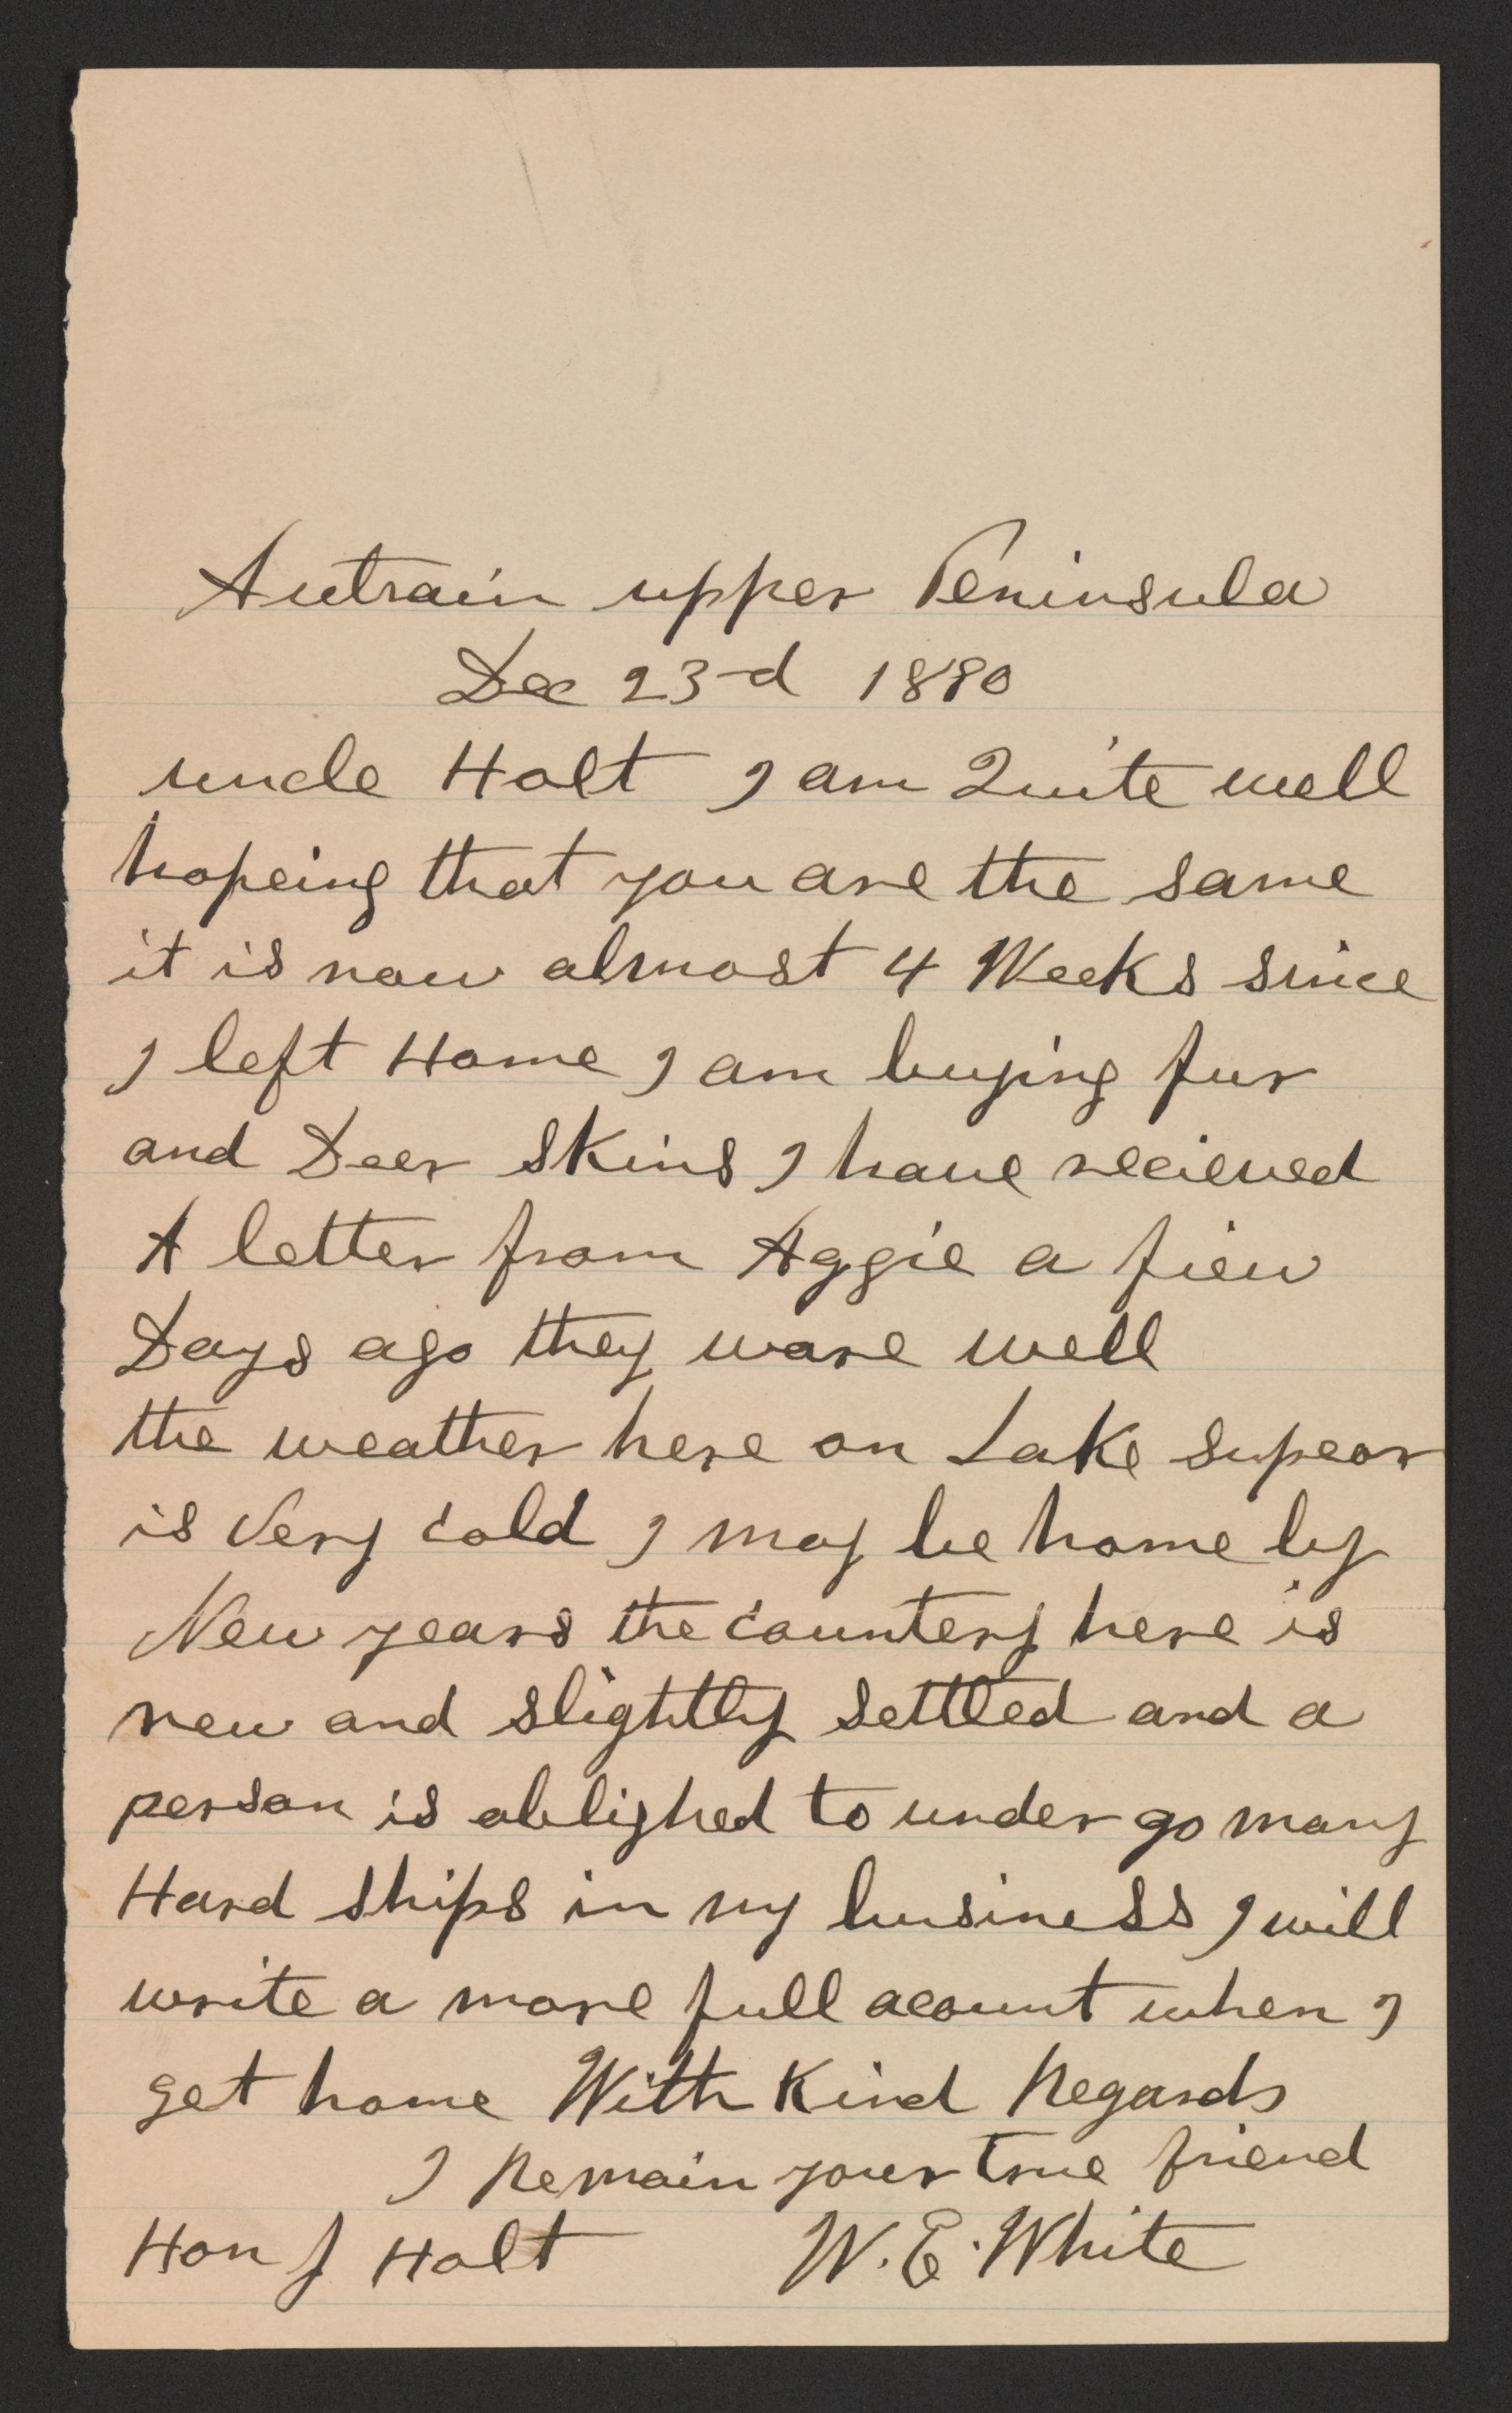 Autrain upper Peninsula
Dec 23-d 1880
uncle Holt I am Quite well
hopeing that you are the same
it is now almost 4 Weeks since
I left Home I am buying fur
and Deer skins I have recieved
A letter from Aggie a fiew
Days ago they ware well
the weather here on Lake supeor
is Very cold I may be home by
New years the countery here is
new and slightly settled and a
person is oblighed to under go many
Hard ships in my business I will
write a more full acount when I
get home With Kind Regards
I Remain your true friend
Hon J Holt W. E. White